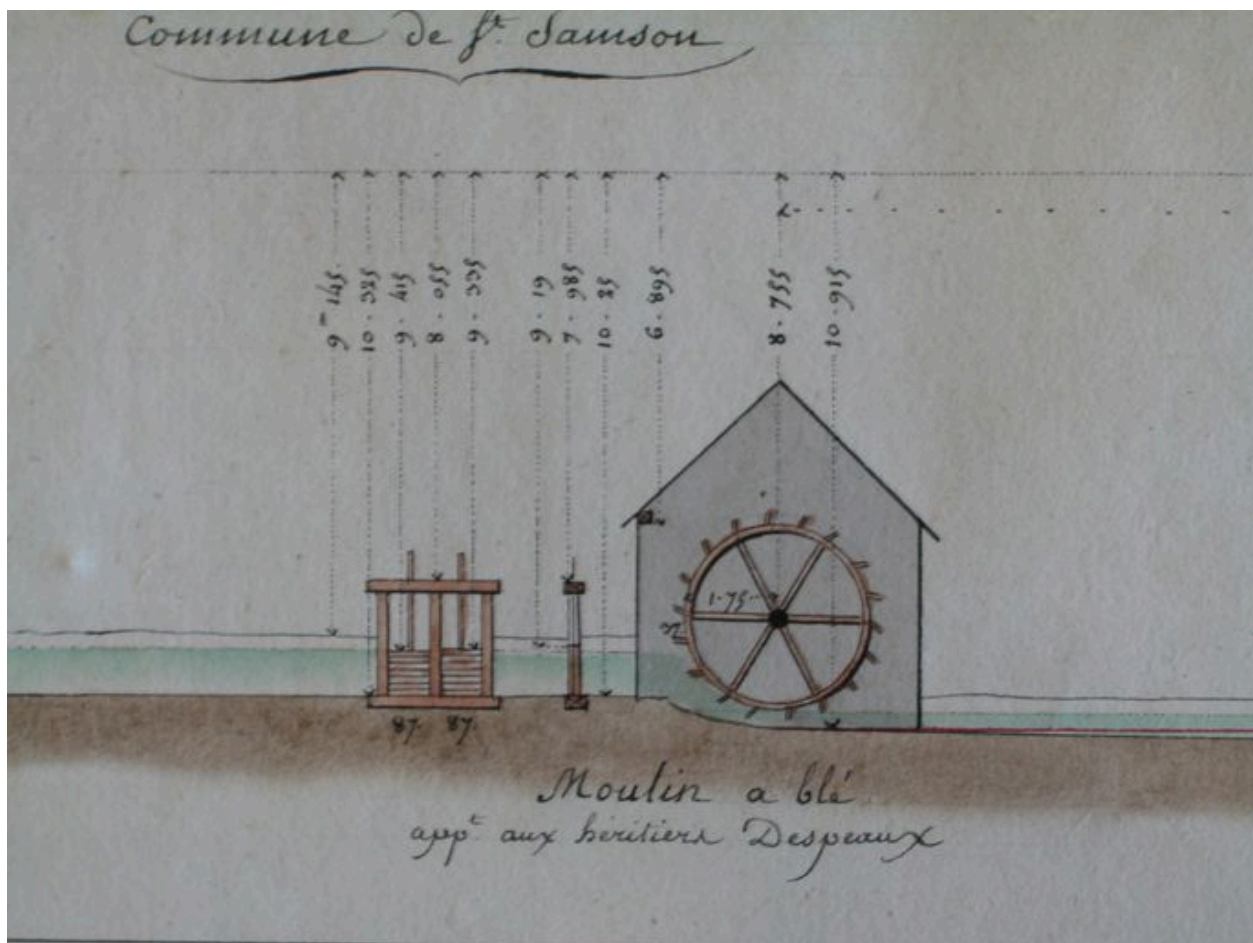 Commune de St. Samson
9m 145
10 . 325
9 . 415
8 . 055
9 . 335
9 . 19
7 . 985
10 . 25
6 . 895
8 . 755
10 . 915
1.75
87. 87.
Moulin a blé
appt. aux héritiers Despeaux